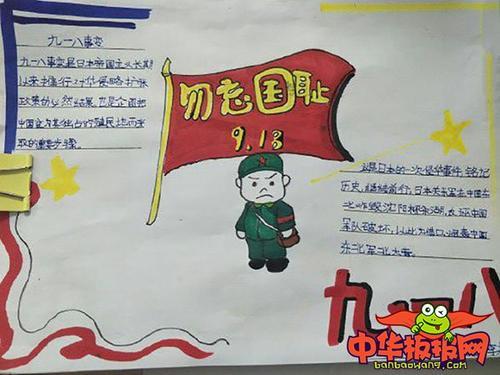 九一八事变
九一八事变是日本帝国主义长期
以来推行对华侵略扩张
政策的必然结果,也是企图把
中国变为其独占的殖民地而采
取的重要步骤
勿忘国耻
9.18
是日本的一次侵华事件,铭记
历史,继续前行,日本关东军在中国东
北炸毁沈阳柳条湖,反诬中国
军队破坏,以此为借口,进攻中国
东北军北大营
九一八
中华板报网
banbaowang.com